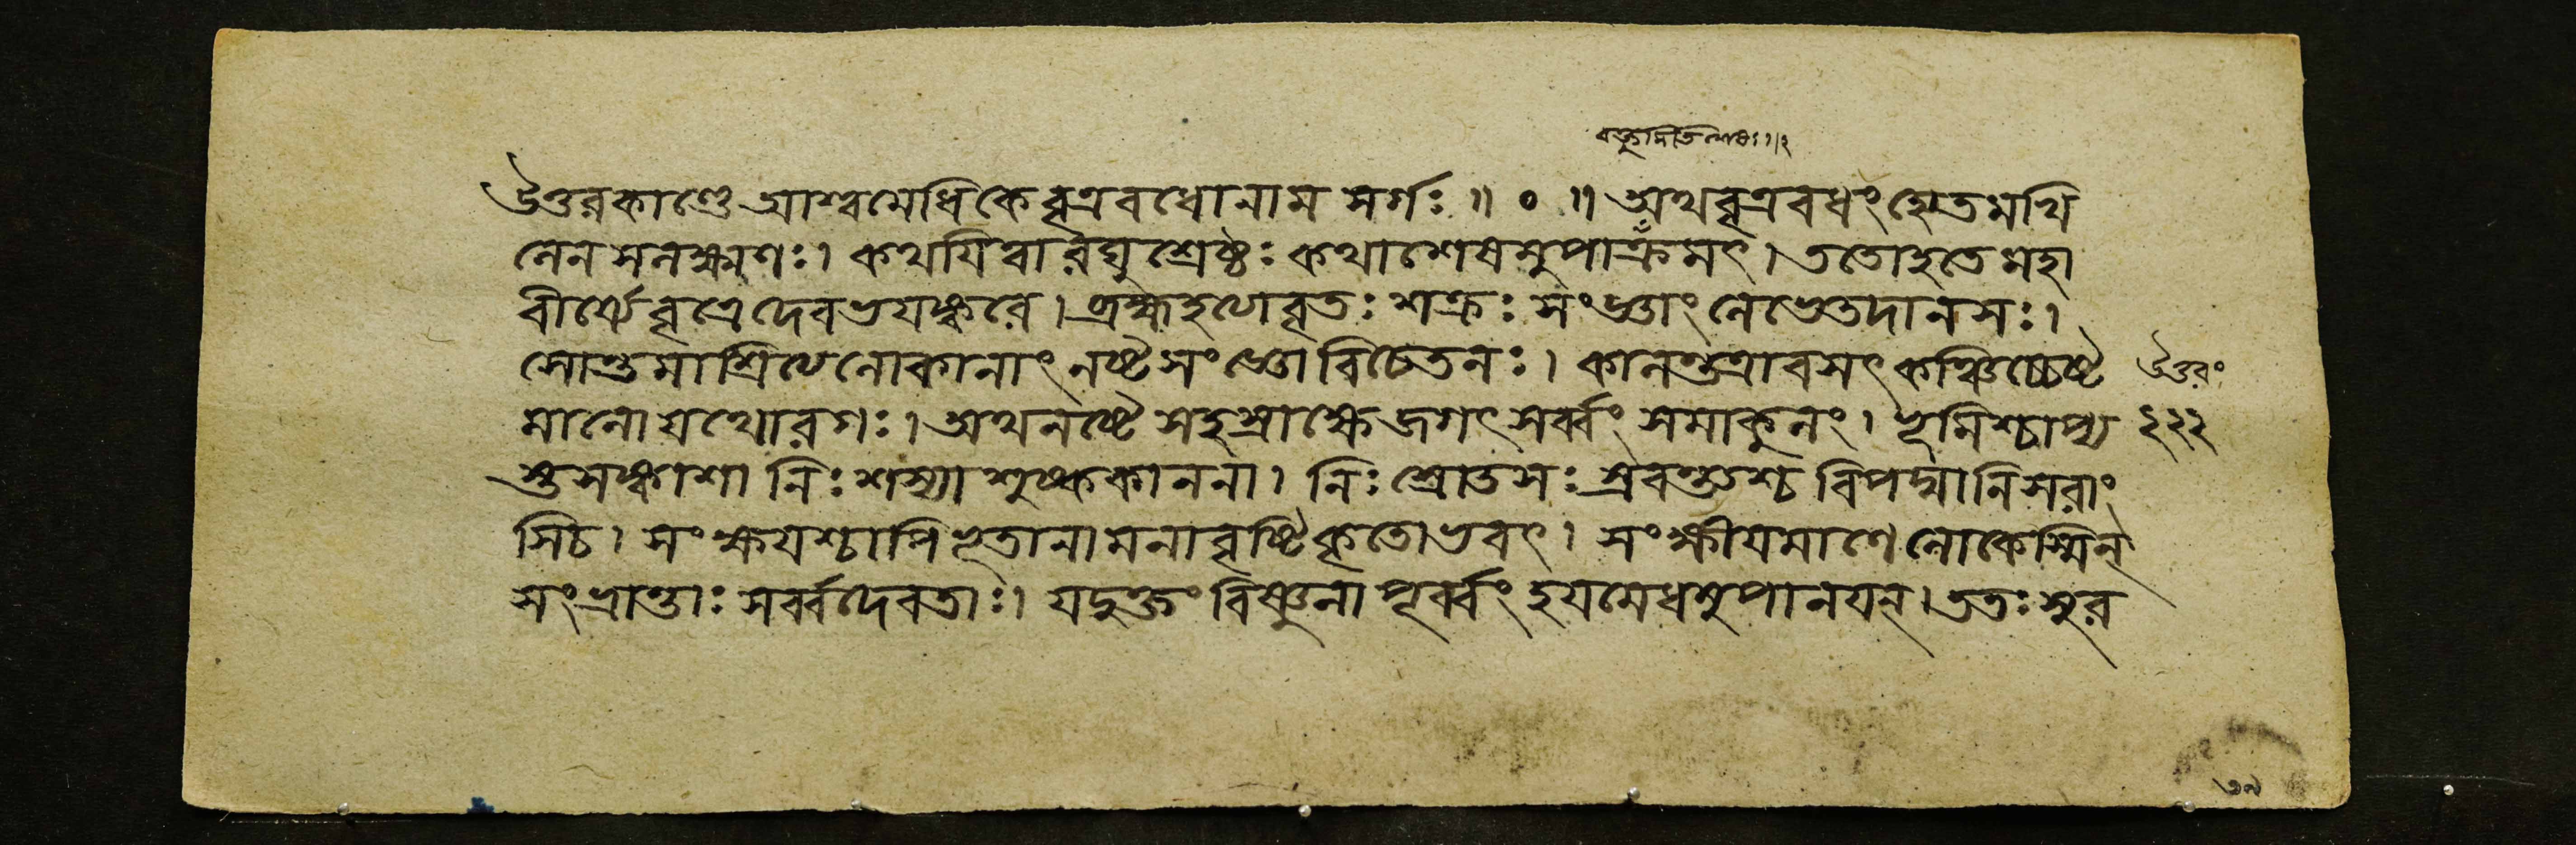 উত্তরকাণ্ডে আশ্বমেধিকে বৃত্রবধোনাম সর্গঃ ॥ ০ ॥ অথবৃত্রবধং হ্যেতমখি
লেন সলক্ষ্মণঃ। কথযিত্বা রঘুশ্রেষ্ঠঃ কথাশেষমুপাক্রমৎ। ততোহতে মহা
বীর্য্যে বৃত্রে দেবভযঙ্করে। ব্রহ্মহত্যাবৃতঃ শক্রঃ সংজ্ঞাং লেভেতদানসঃ।
সোন্তমাশ্রিত্য লোকানাং নষ্টসংজ্ঞো বিচেতনঃ। কালন্তত্রাবসৎ কঞ্চিচ্চেষ্ট
মানো যথোরগঃ। অথনষ্টে সহস্রাক্ষে জগৎ সর্ব্বং সমাকুলং। ভূমিশ্চাপ্য
স্তসঙ্কাশা নিঃশস্যা শুষ্ককাননা। নিঃস্রোতসঃ স্রবন্ত্যশ্চ বিপদ্মানি সরাং
সিচ। সংক্ষযশ্চাপি ভূতানামনাবৃষ্টিকৃতোভবৎ। সংক্ষীযমাণে লোকেস্মিন্
সংভ্রান্তাঃ সর্ব্বদেবতাঃ। যদুক্তং বিষ্ণুনা পূর্ব্বং হযমেধমুপানযন্। ততঃ সুর
উত্তরং
২২২
৩৯